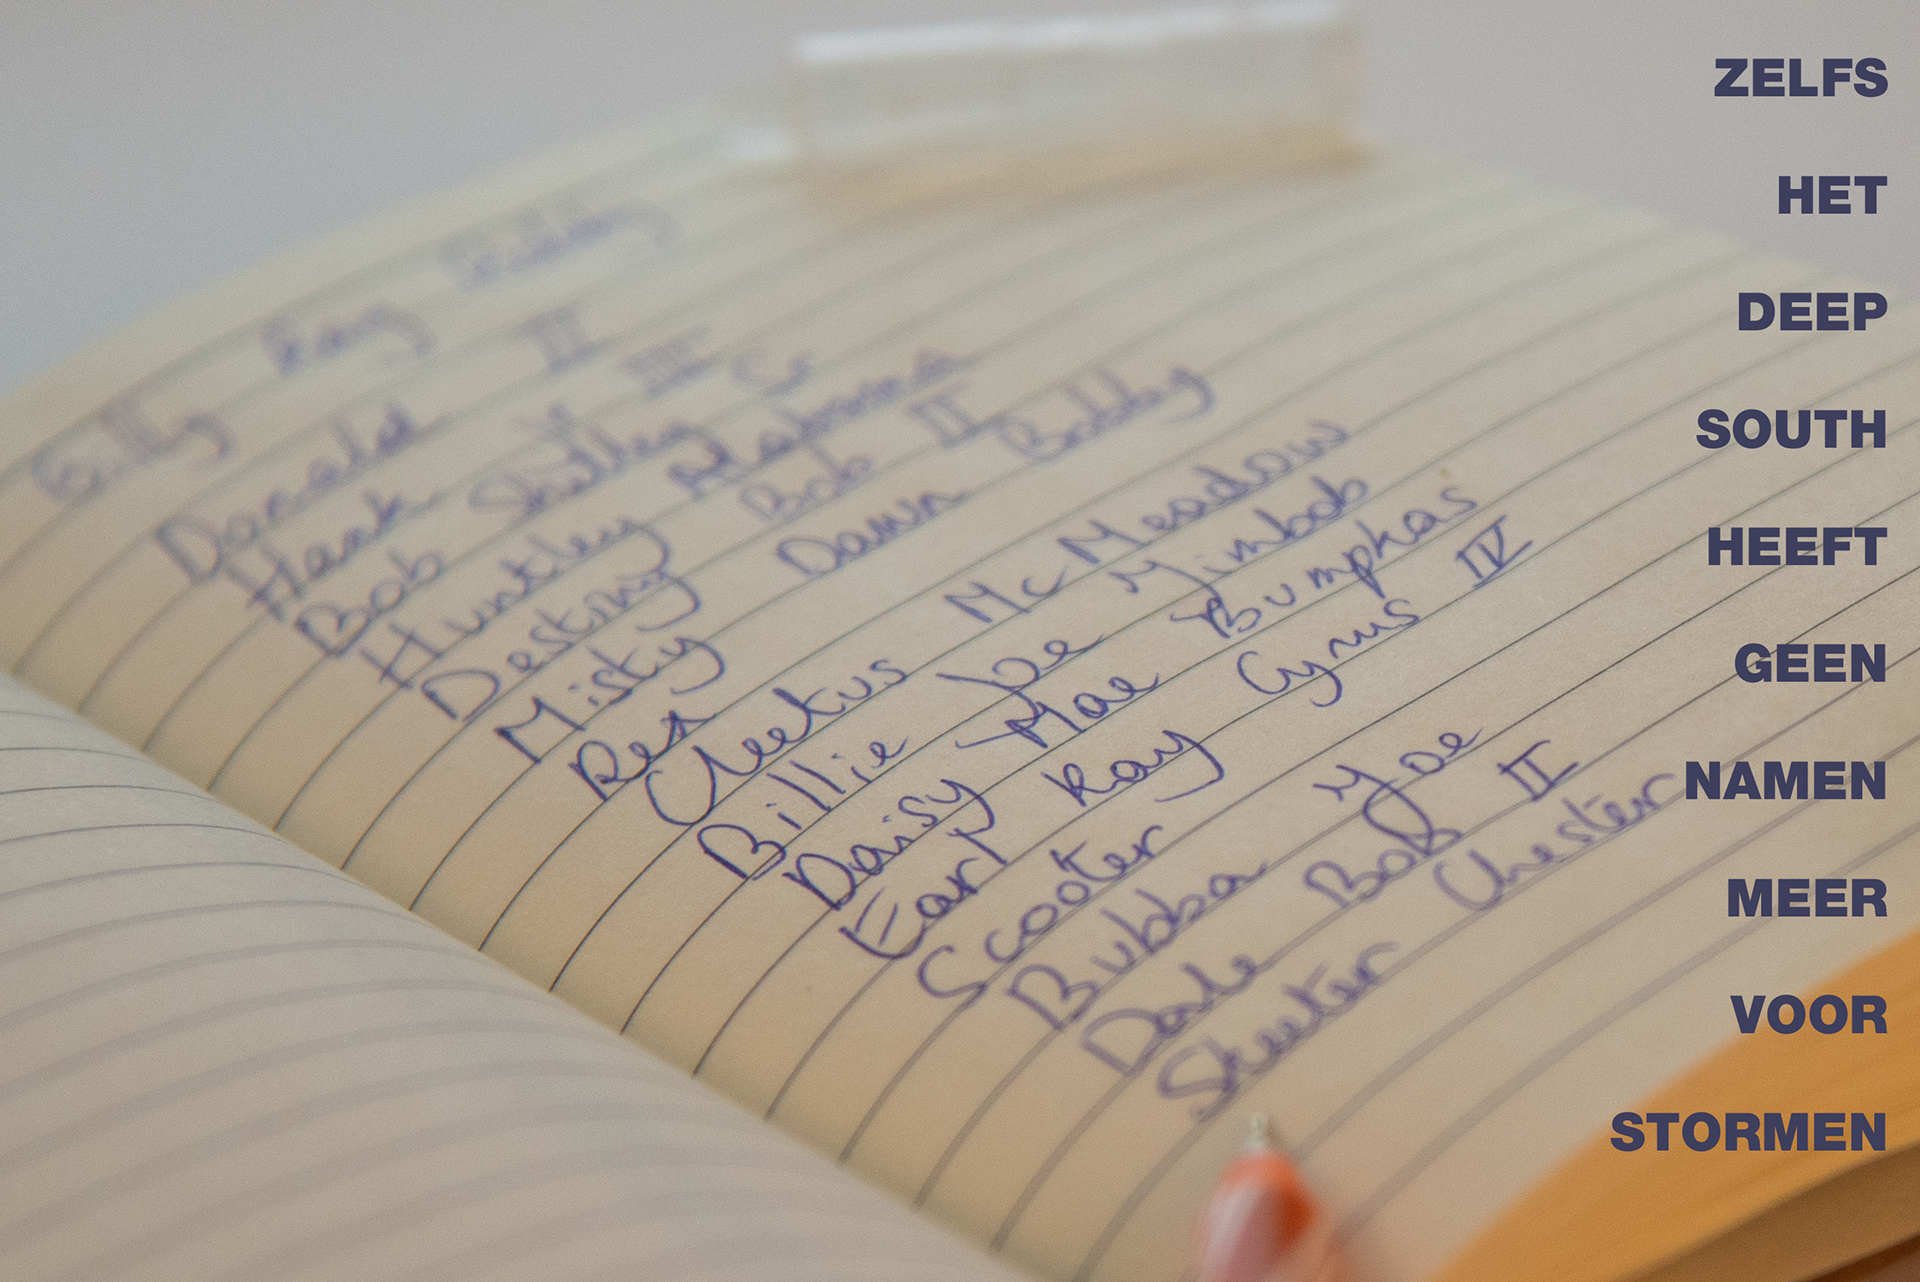 Billy Ray
Donald II
Hank Y III
Bob Shitley Sr
Huntley Alabama
Destiny Bob II
Misty Dawn Bobby
Rex
Cleetus McMeadow
Billie Joe Jimbob
Daisy Mae Bumphas
Earl Ray Cyrus IV
Scooter
Bubba Joe
Dale Bob II
Skeeter Chester
ZELFS
HET
DEEP
SOUTH
HEEFT
GEEN
NAMEN
MEER
VOOR
STORMEN